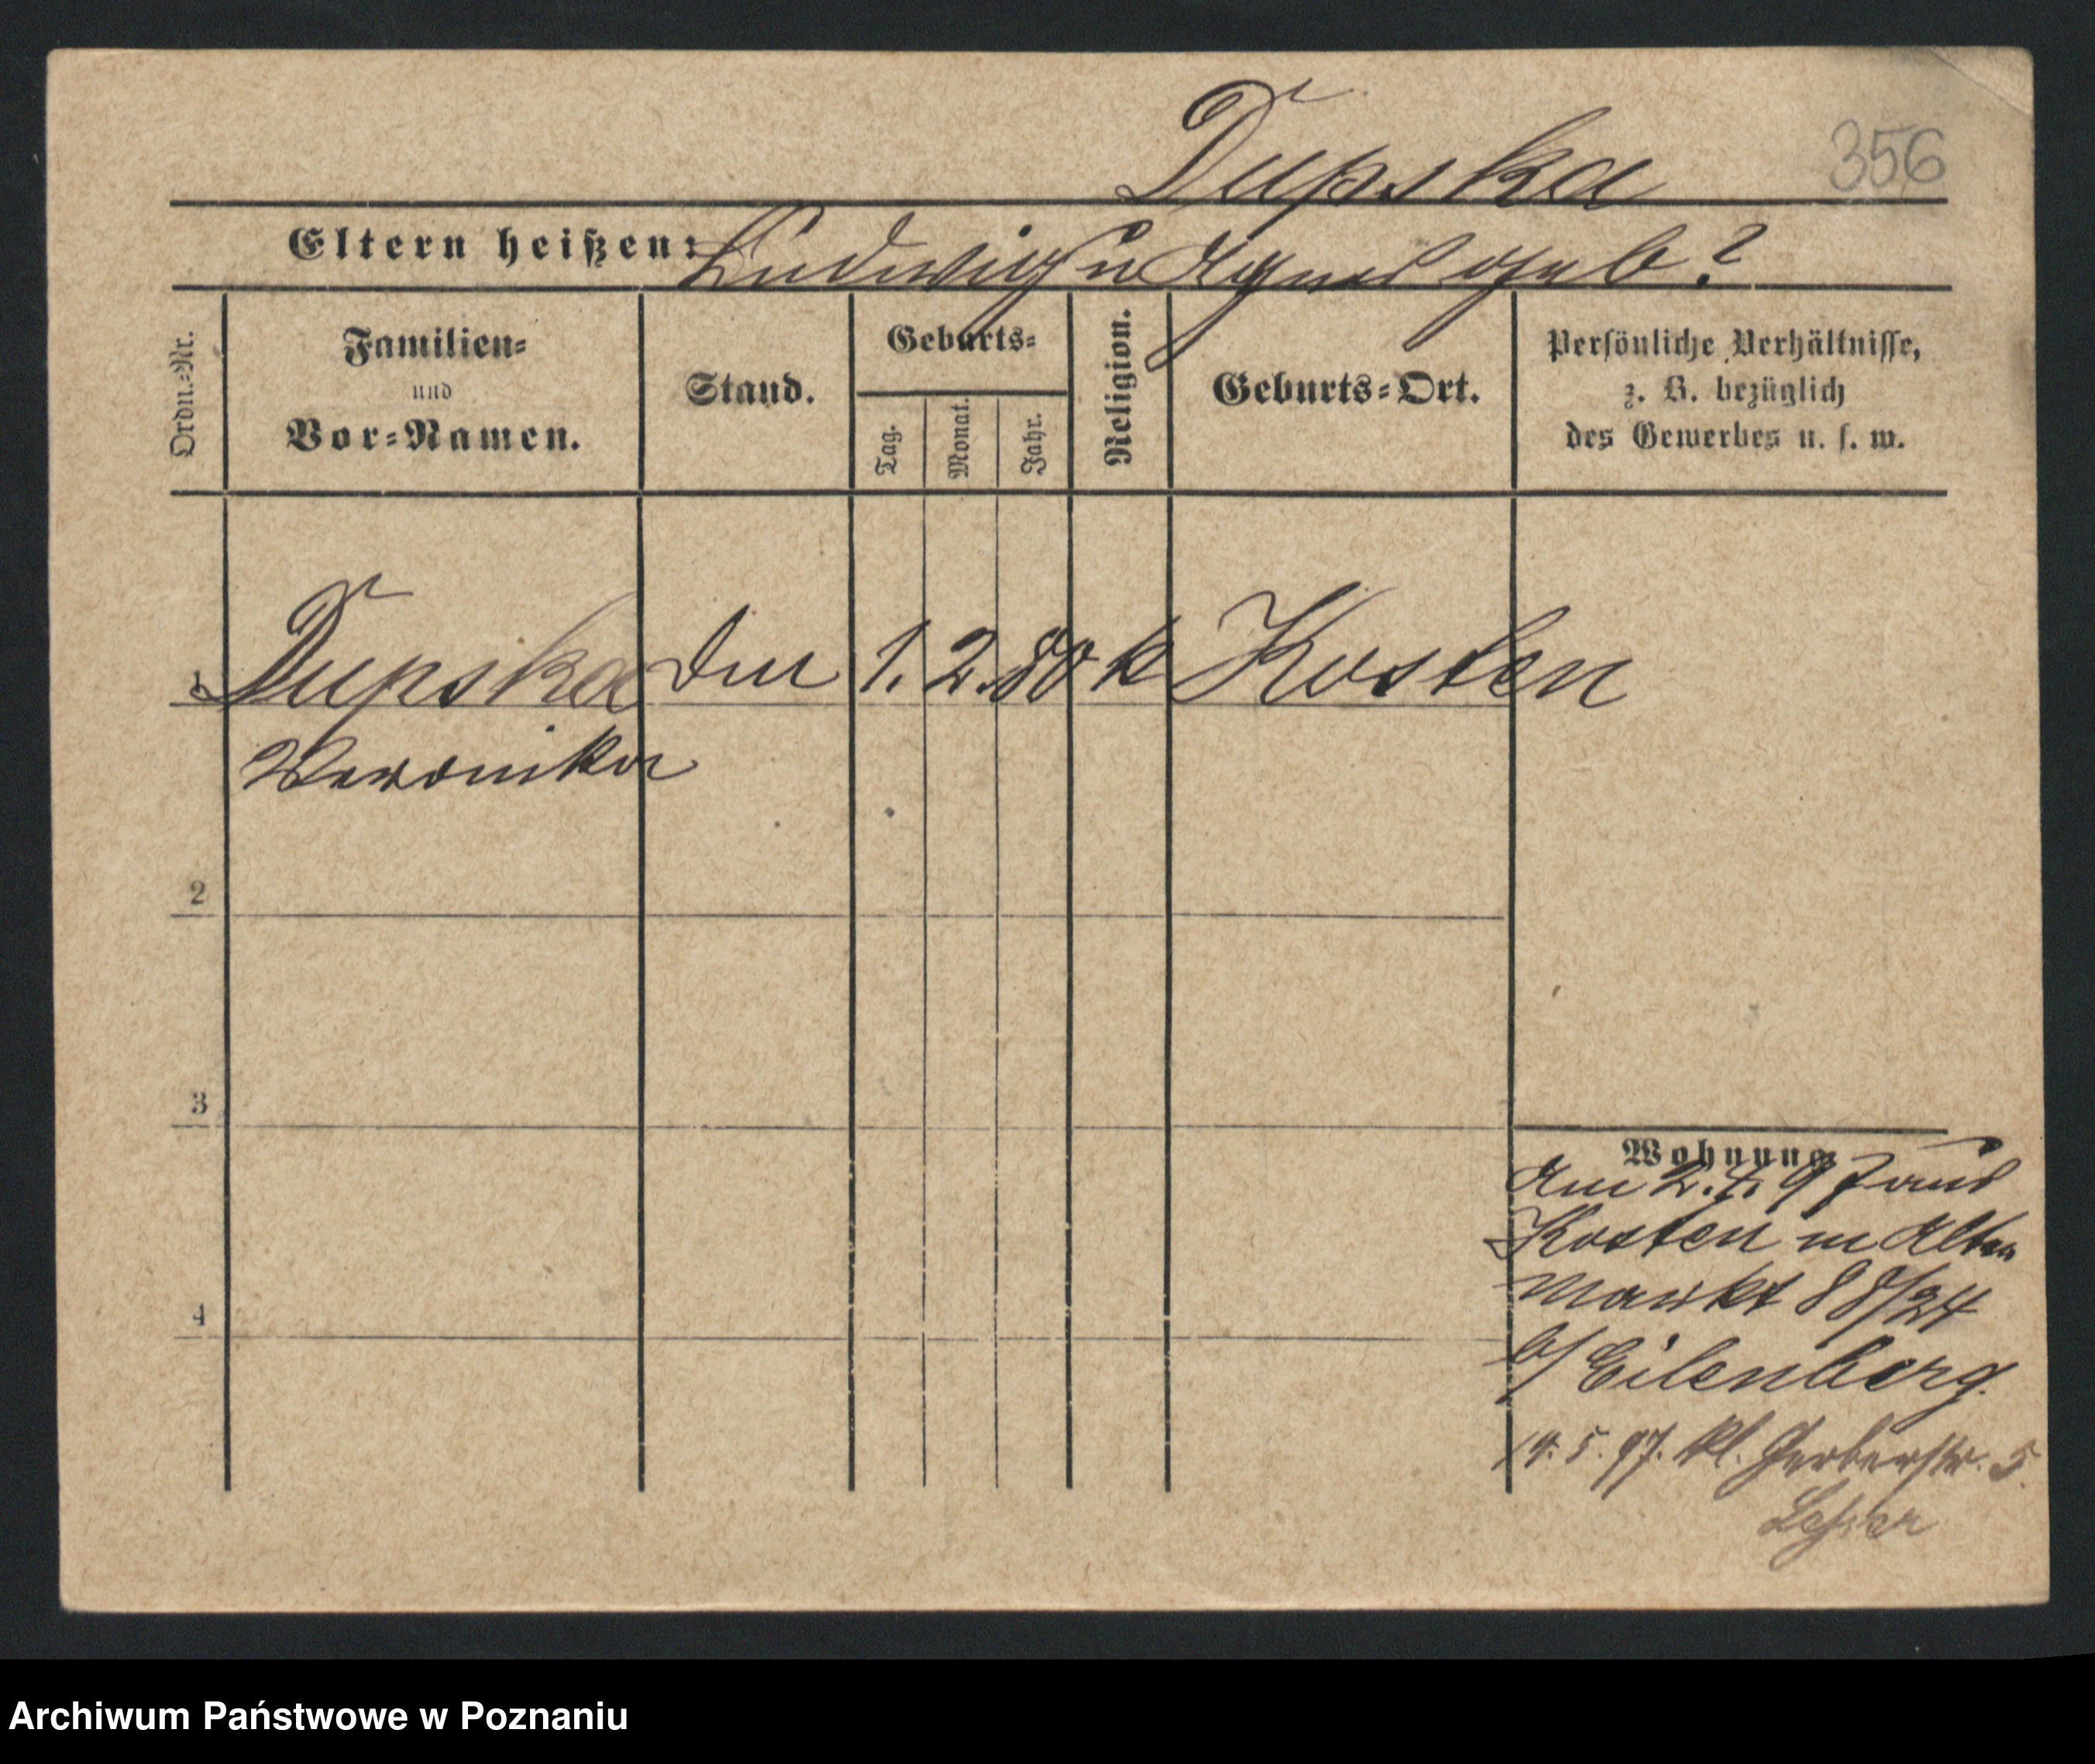 Dupska 356
Eltern heißen: Ludwig u Agnes geb?
Ordn.-Nr.
Familien-
und
Vor-Namen.
Stand.
Geburts-
Tag.
Monat.
Jahr.
Religion.
Geburts-Ort.
Persönliche Verhältnisse,
z. B. bezüglich
des Gewerbes u. s. w.
1 Dupska 1. 2. 80 k Kosten
Veronika
2
3
4
Wohnung
Am 2. 4. 97 aus
Kosten in Alten
Markt 88/24
b/ Eilenberg.
14. 5. 97. kl. Gerberstr. 5
Archiwum Państwowe w Poznaniu